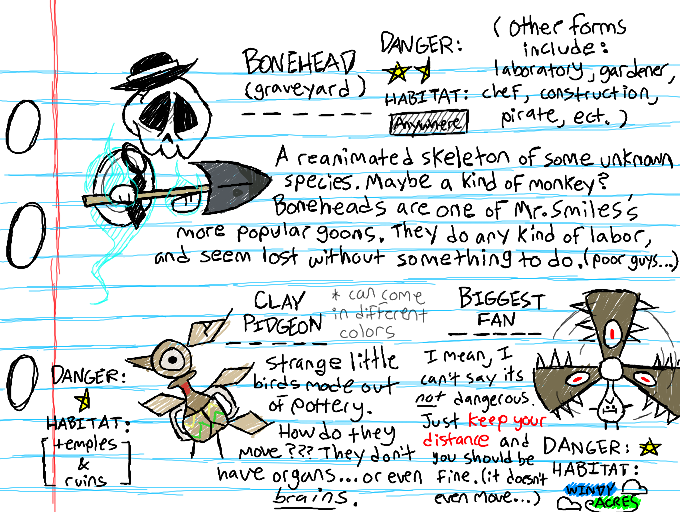 BONEHEAD
(graveyard)
DANGER:
HABITAT:
Anywhere
(Other forms
include:
laboratory, gardener,
chef, construction,
pirate, ect.)
A reanimated skeleton of some unknown
species. Maybe a kind of monkey?
Boneheads are one of Mr. Smiles's
more popular goons. They do any kind of labor,
and seem lost without something to do. (poor guys...)
CLAY
PIDGEON
* can come
in different
colors
DANGER:
HABITAT:
temples
&
ruins
strange little
birds made out
of pottery.
How do they
move??? They don't
have organs... or even
brains.
BIGGEST
FAN
I mean, I
can't say its
not dangerous.
Just keep your
distance and
you should be
fine. (it doesn't
even move...)
DANGER:
HABITAT:
WINDY
ACRES